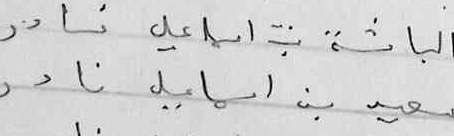 الباشة بنت اسماعيل نادر
سعيد بن اسماعيل نادر